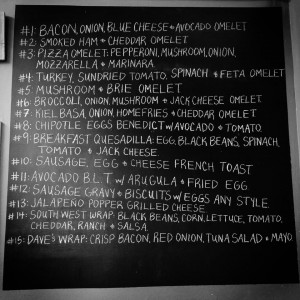 #1: BACON, ONION, BLUE CHEESE + AVOCADO OMELET
#2: SMOKED HAM + CHEDDAR OMELET
#3: PIZZA OMELET: PEPPERONI, MUSHROOM, ONION,
MOZZARELLA + MARINARA
#4: TURKEY, SUNDRIED TOMATO, SPINACH + FETA OMELET
#5: MUSHROOM + BRIE OMELET
#6: BROCCOLI, ONION, MUSHROOM + JACK CHEESE OMELET
#7: KIELBASA, ONION, HOMEFRIES + CHEDDAR OMELET
#8: CHIPOTLE EGGS BENEDICT W/ AVOCADO + TOMATO
#9: BREAKFAST QUESADILLA: EGG, BLACK BEANS, SPINACH,
TOMATO + JACK CHEESE
#10: SAUSAGE, EGG + CHEESE FRENCH TOAST
#11: AVOCADO B.L.T W/ ARUGULA + FRIED EGG
#12: SAUSAGE GRAVY + BISCUITS W/ EGGS ANY STYLE
#13: JALAPEÑO POPPER GRILLED CHEESE
#14: SOUTH WEST WRAP: BLACK BEANS, CORN, LETTUCE, TOMATO,
CHEDDAR, RANCH + SALSA
#15: DAVE'S WRAP: CRISP BACON, RED ONION, TUNA SALAD + MAYO